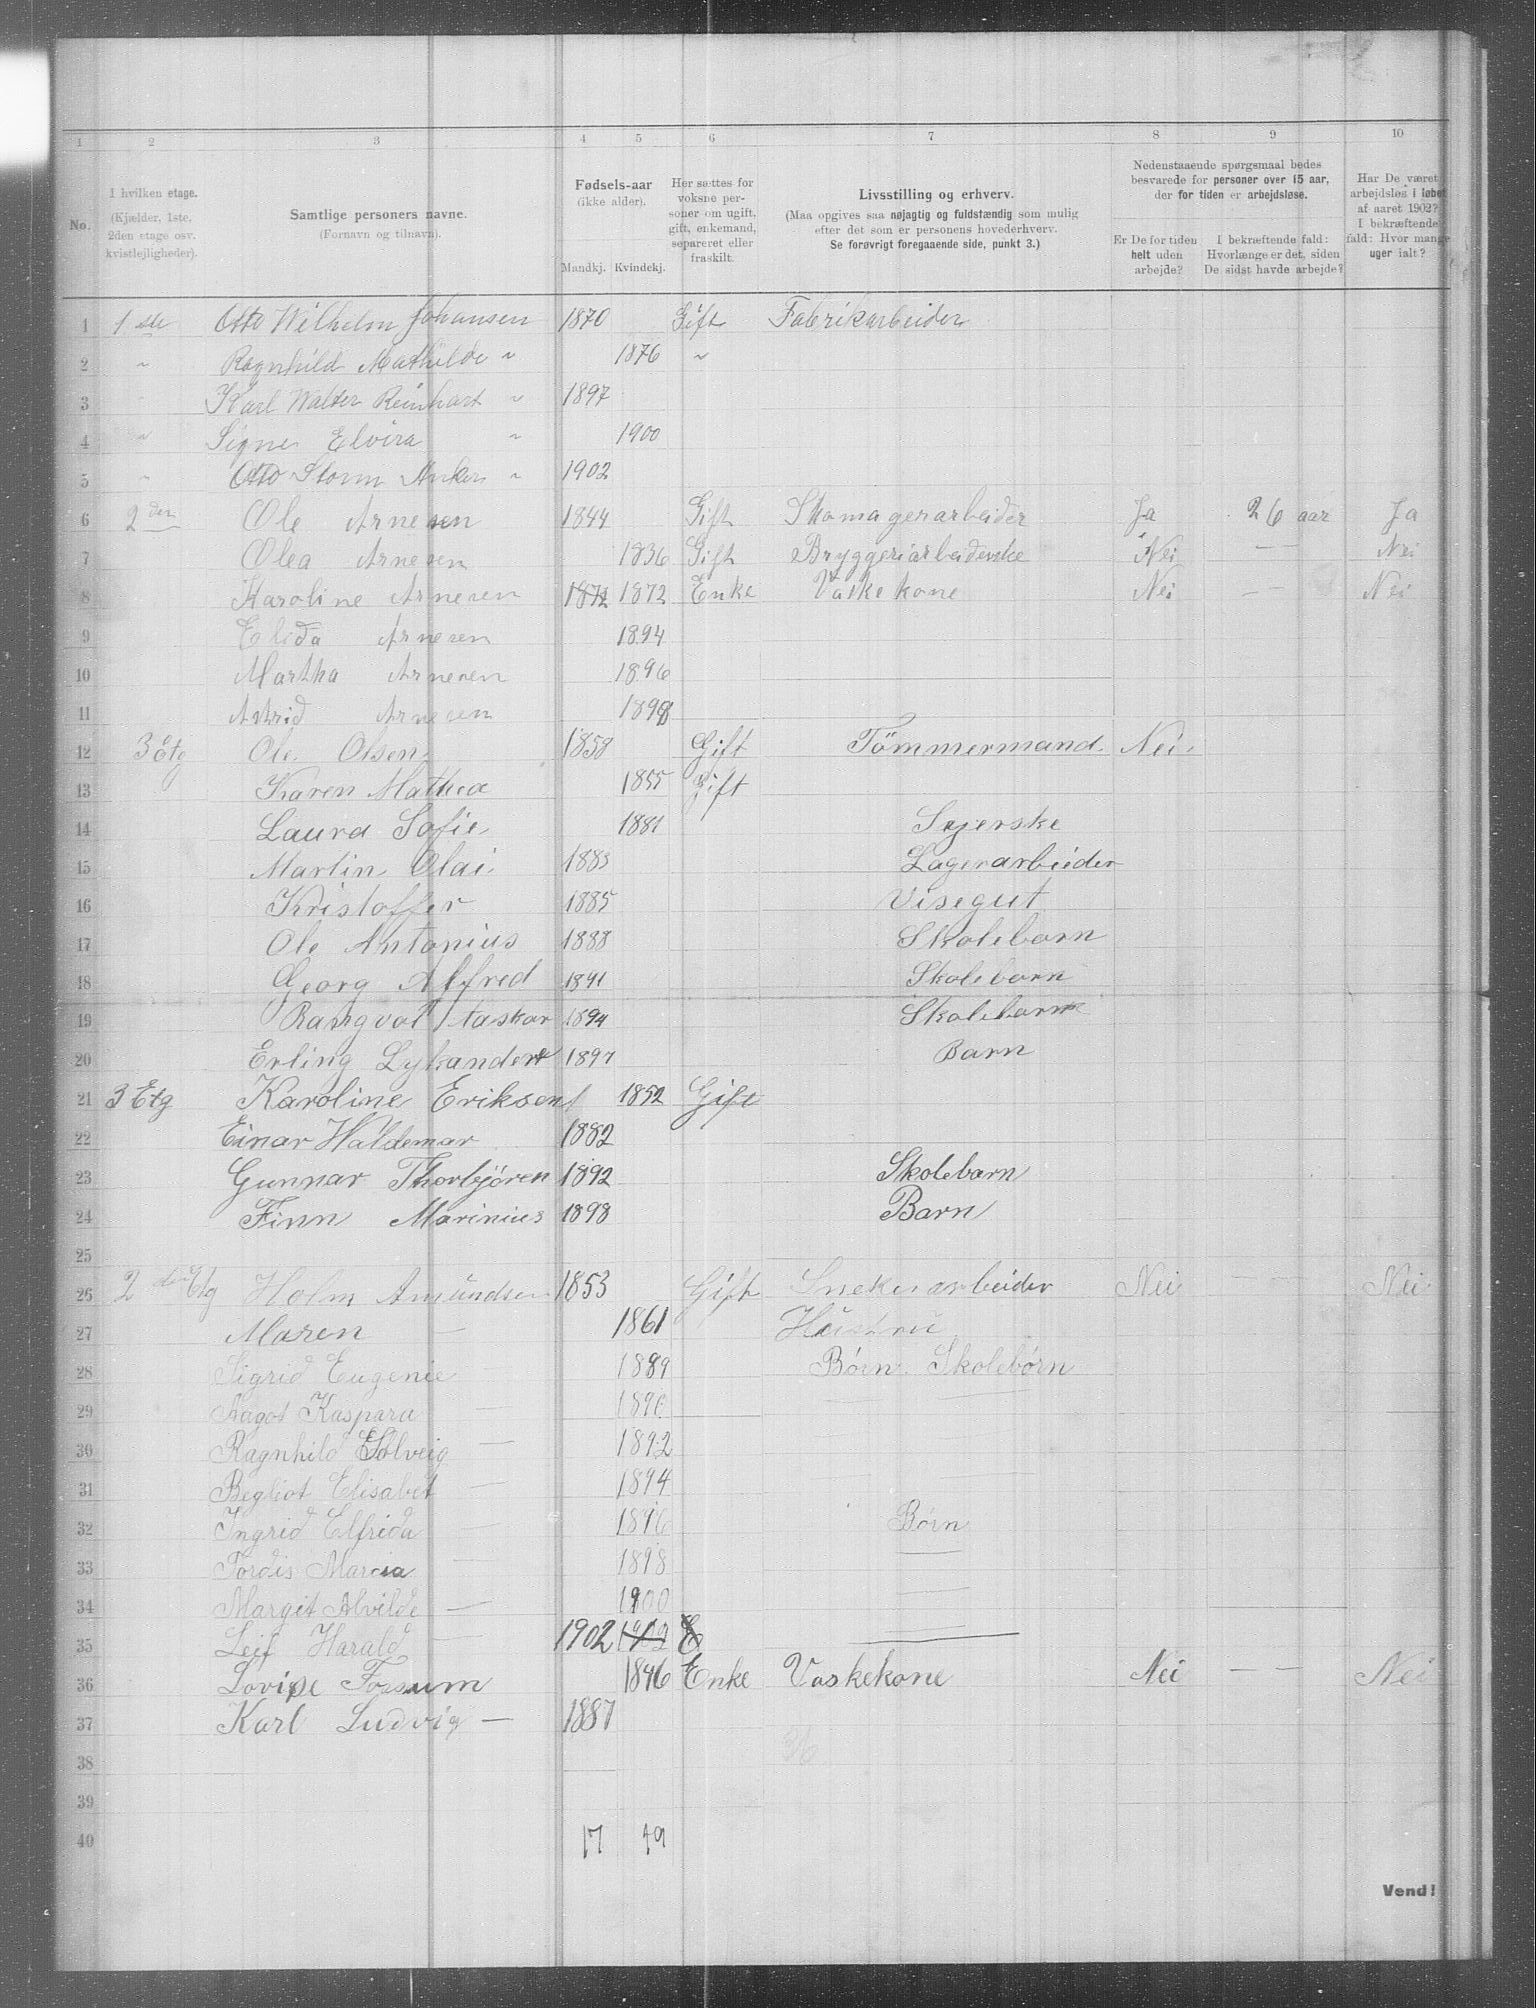 1 2 3 4 5 6 7 8 9 10
No.
I hvilken etage.
(Kjælder, 1ste,
2den etage osv.
kvistlejligheder).
Samtlige personers navne.
(Fornavn og tilnavn).
Fødsels-aar
(ikke alder).
Mandkj. Kvindekj.
Her sættes for
voksne per-
soner om ugift,
gift, enkemand,
separeret eller
fraskilt.
Livsstilling og erhverv.
(Maa opgives saa nøjagtig og fuldstændig som mulig
efter det som er personens hovederhverv.
Se forøvrigt foregaaende side, punkt 3.)
Nedenstaaende spørgsmaal bedes
besvarede for personer over 15 aar,
der for tiden er arbejdsløse.
Er De for tiden
helt uden
arbejde?
I bekræftende fald:
Hvorlænge er det, siden
De sidst havde arbejde?
Har De været
arbejdsløs i løbet
af aaret 1902?
I bekræftende
fald: Hvor mange
uger ialt?
1 1 ste Otto Wilhelm Johansen 1870 Gift Fabrikarbeider
2 " Ragnhild Mathilde " 1876 "
3 Karl Walter Reinhart " 1897
4 " Signe Elvira " 1900
5 " Otto Storm Anker " 1902
6 2 den Ole Arnesen 1844 Gift Skomagerarbeider Ja 26 aar Ja
7 Olea Arnesen 1836 Gift Bryggeriarbeiderske Nei — Nei
8 Karoline Arnesen 1872 1872 Enke Vaskekone Nei — Nei
9 Elida Arnesen 1894
10 Martha Arnesen 1896
11 Astrid Arnesen 1898
12 3 etg Ole Olsen 1858 Gift Tömmermand Nei.
13 Karen Mathea 1855 Gift
14 Laura Sofie 1881 Syerske
15 Martin Olai 1883 Lagerarbeider
16 Kristoffer 1885 Visegut
17 Ole Antonius 1888 Skolebarn
18 Georg Alfred 1891 Skolebarn
19 Rangvol Haskar 1894 Skolebarn
20 Erling Lykander 1897 Barn
21 3 Etg Karoline Eriksen 1852 Gift
22 Einar Haldemar 1882
23 Gunnar Thorbjören 1892 Skolebarn
24 Finn Marinius 1898 Barn
25
26 2 den Etg Holm Amundsen 1853 Gift Snekerarbeider Nei — Nei
27 Maren — 1861 Hustru
28 Sigrid Eugenie — 1889 Börn Skolebörn
29 Aagot Kaspara — 1890 —
30 Ragnhild Solveig — 1892 —
31 Begliot Elisabet — 1894 —
32 Ingrid Elfrida — 1896 Börn
33 Tordis Maria — 1898 —
34 Margit Alvilde — 1900 —
35 Leif Harald — 1902 1902 E —
36 Lovise Fossum 1846 Enke Vaskekone Nei — — Nei
37 Karl Ludvig — 1887
38 36
39
40 17 19
Vend!